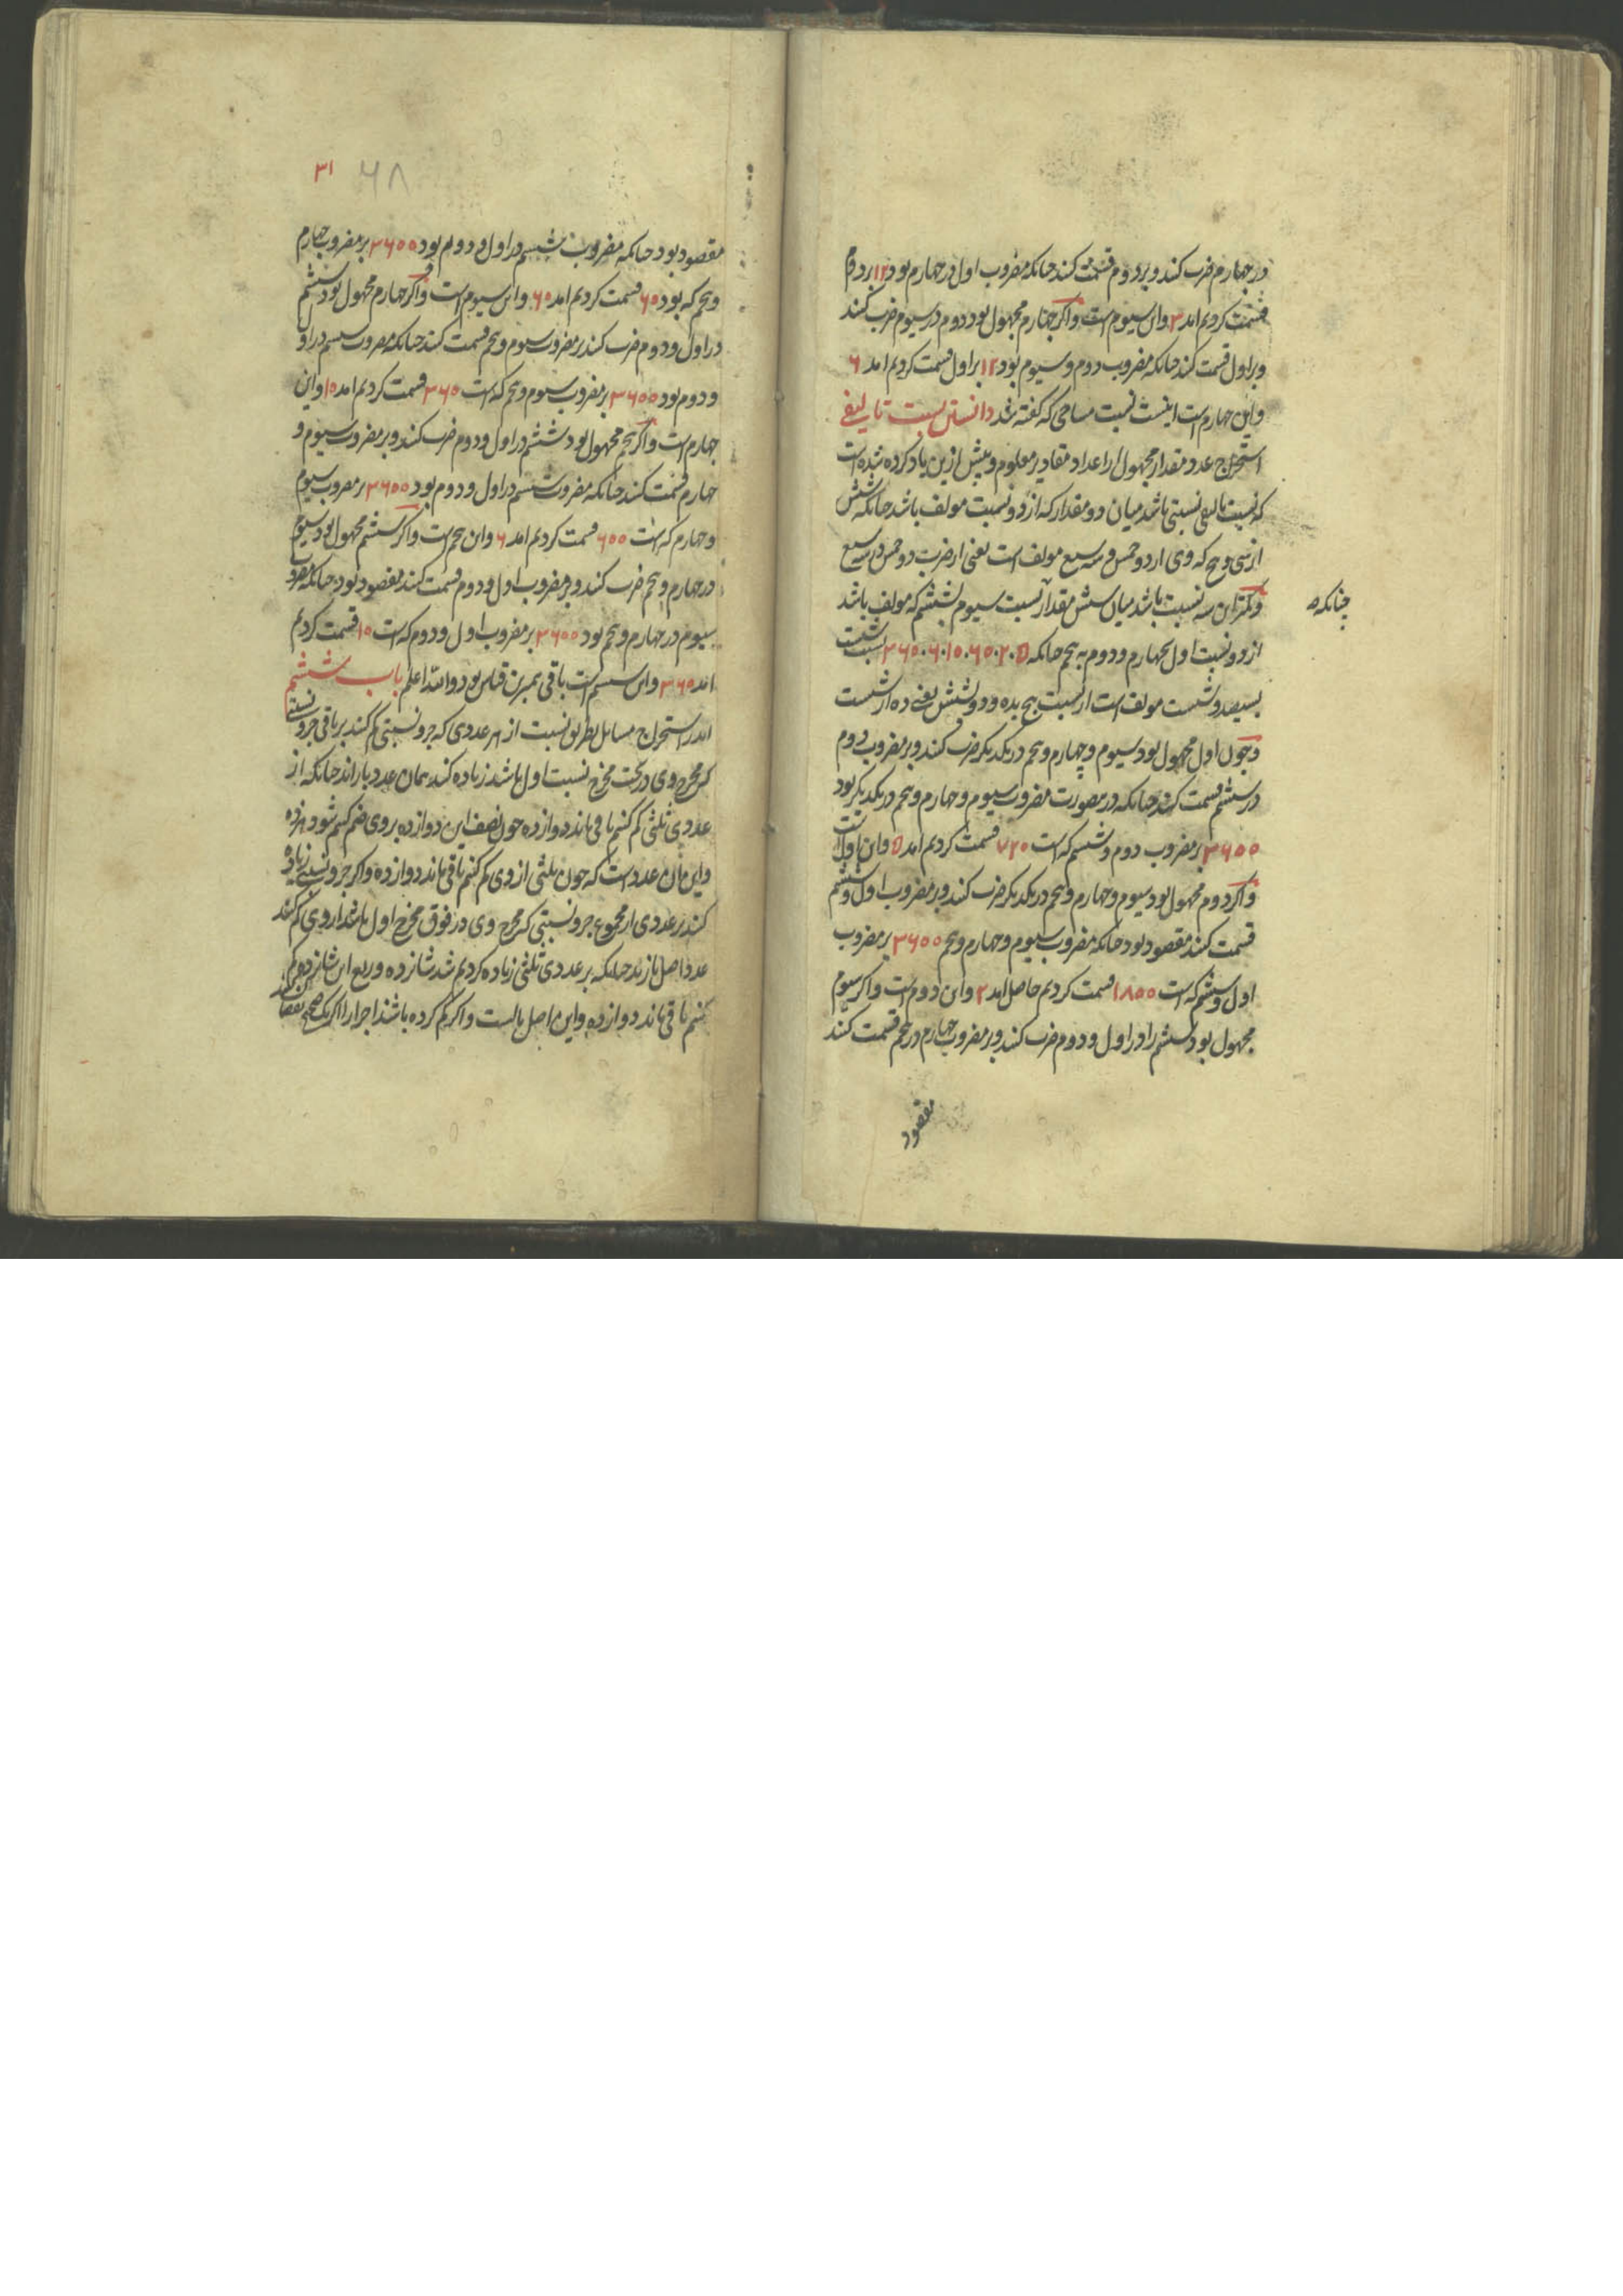 در چهارم ضرب کنند و بر دوم قسمت کنند چنانکه مضروب اول در چهارم بود ۱۲ بر دوم
قسمت کردیم امد ۳ واین سیوم است واکر چهارم مجهول بود دوم در سیوم ضرب کنند
وبر اول قسمت کنند چنانکه مضروب دوم وسیوم بود ۱۲ بر اول قسمت کردیم امد ۶
واین چهارم است اینست نسبت مساحی که کفته شد دانستن نسبت تالیفی
استخراج عدد مقدار مجهول از اعداد مقادیر معلوم وپیش ازین یاد کرده شده است
که نسبت تالیفی نسبتی باشد میان دو مقدار که از دو نسبت مولف باشد چنانکه شش
از سی وپنج که وی از دو خمس وسه سبع مولف است یعنی از ضرب دو خمس در سه سبع
وکمتر این سه نسبت باشد میان شش مقدار نسبت سیوم بششم که مولف باشد
چنانکه
از دو نسبت اول بچهارم ودوم به پنجم چنانکه ۵ . ۲ . ۶۰ . ۱۰ . ۶ . ۳۶۰ نسبت شست
بسیصد وشست مولف است از نسبت پنج بده ودو بشش یعنی ده از شست
وچون اول مجهول بود سیوم وچهارم وپنجم در یکدیکر ضرب کنند وبر مضروب دوم
در ششم قسمت کنند چنانکه درین صورت مضروب سیوم وچهارم وپنجم در یکدیکر بود
۳۶۰۰ بر مضروب دوم وششم که است ۷۲۰ قسمت کردیم امد ۵ واین اول است
واکر دوم مجهول بود سیوم وچهارم وپنجم در یکدیکر ضرب کنند وبر مضروب اول وششم
قسمت کنند مقصود بود چنانکه مضروب سیوم وچهارم وپنجم ۳۶۰۰ بر مضروب
اول وششم که است ۱۸۰۰ قسمت کردیم حاصل امد ۲ واین دوم است واکر سیوم
مجهول بود ششم را در اول ودوم ضرب کنند وبر مضروب چهارم در پنجم قسمت کنند
مقصود
۳۱ ۶۸
مقصود بود چنانکه مضروب ششم در اول ودوم بود ۳۶۰۰ بر مضروب چهارم
وپنجم که بود ۶۰ قسمت کردیم امد ۶۰ واین سیوم است واکر چهارم مجهول بود ششم
در اول ودوم ضرب کنند بر مضروب سیوم وپنجم قسمت کنند چنانکه مضروب ششم در اول
ودوم بود ۳۶۰۰ بر مضروب سیوم وپنجم که است ۳۶۰ قسمت کردیم امد ۱۰ واین
چهارم است واکر پنجم مجهول بود ششم در اول ودوم ضرب کنند وبر مضروب سیوم و
چهارم قسمت کنند چنانکه مضروب ششم در اول ودوم بود ۳۶۰۰ بر مضروب سیوم
وچهارم که است ۶۰۰ قسمت کردیم امد ۶ واین پنجم است واکر ششم مجهول بود سیوم
در چهارم وپنجم ضرب کنند وبر مضروب اول ودوم قسمت کنند مقصود بود چنانکه مضروب
سیوم در چهارم وپنجم بود ۳۶۰۰ بر مضروب اول ودوم که است ۱۰ قسمت کردیم
امد ۳۶۰ واین ششم است باقی بمرین قیاس بود والله اعلم باب ششم
اندر استخراج مسایل بطریق نسبت از هر عددی که جزو نسبتی کم کنند بر باقی جزو نسبتی
که مخرج وی در تحت مخرج نسبت اول باشد زیاده کنند همان عدد باز اند چنانکه از
عددی ثلثی کم کنیم باقی ماند دوازده چون نصف این دوازده بروی ضم کنیم شود هژده
واین مان عدد است که چون ثلثی از وی کم کنیم باقی ماند دوازده واکر جزو نسبتی زیاده
کنند بر عددی از مجموع جزو نسبتی که مخرج وی در فوق مخرج اول باشد از وی کم کنند
عدد اصل باز اید چنانکه بر عددی ثلثی زیاده کردیم شد شانزده وربع این شانزده کم
کنیم باقی ماند دوازده واین اصل مالست واکر کم کرده باشند اجزا را اکر یک صحیح